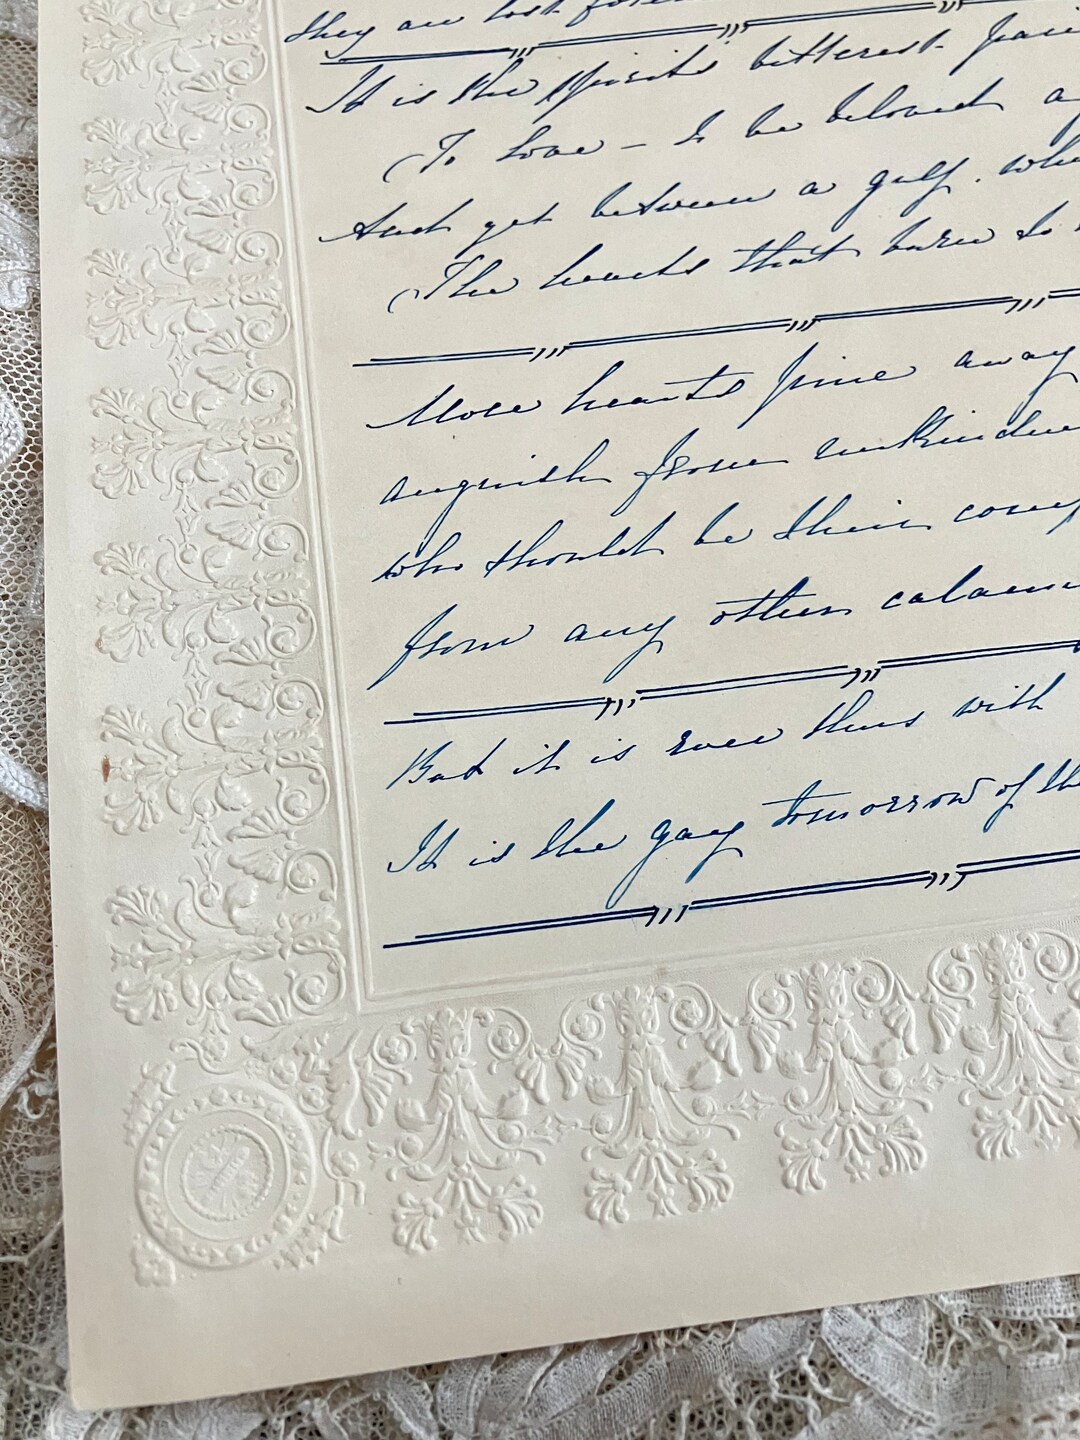 they are lost
It is the spirits bitterest
To love - to be beloved
And yet between a gulf . 
The hearts that burn to
More hearts pine away
anguish from
who should be their
from any other
But it is ever thus with
It is the gay tomorrow of